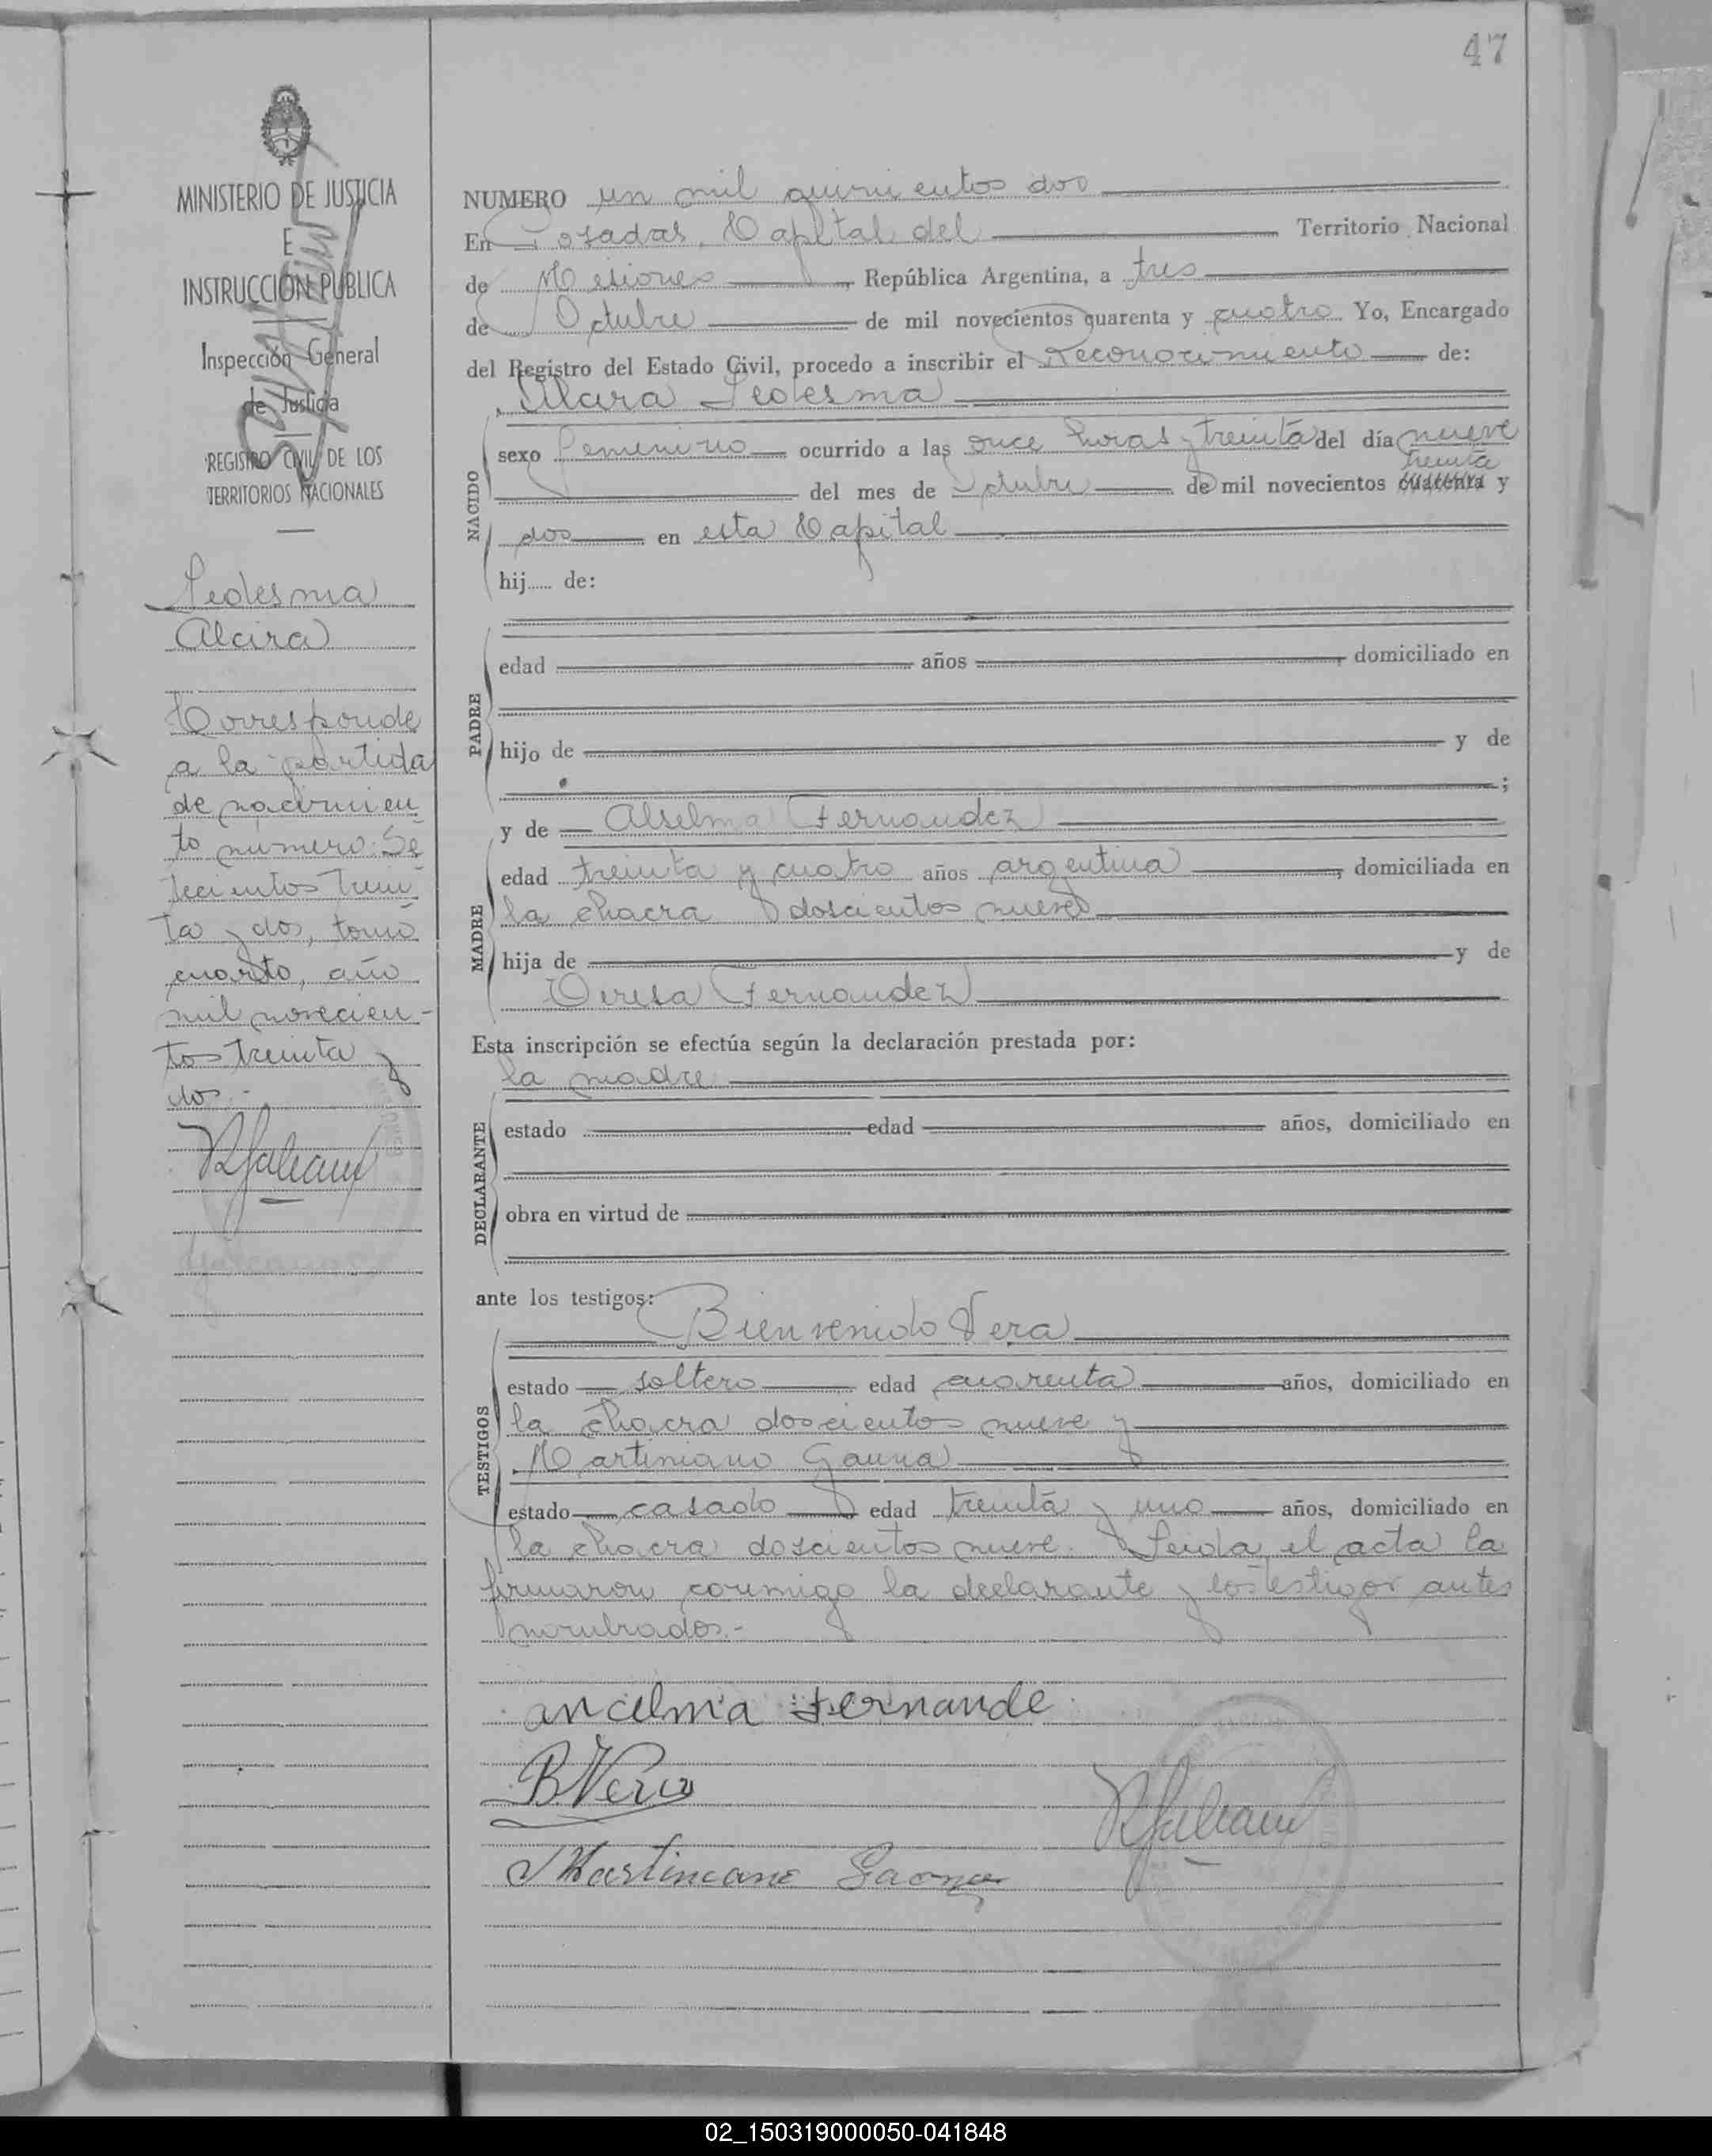 47
MINISTERIO DE JUSTICIA
E
INSTRUCCIÓN PUBLICA
Inspección General
de Justicia
REGISTRO CIVIL DE LOS
TERRITORIOS NACIONALES
Ledesma
Alcira
Corresponde
a la partida
de nacimien
to número: Se
tecientos trein
ta y dos, tomo
cuarto, año
mil novecien-
tos treinta y
dos.-
NUMERO un mil quinientos dos
En Posadas, Capital del Territorio Nacional
de Misiones, República Argentina, a tres
de Octubre de mil novecientos cuarenta y cuatro Yo, Encargado
del Registro del Estado Civil, procedo a inscribir el Reconocimiento de:
Alcira Ledesma
NACIDO
sexo femenino ocurrido a las once horas y treinta del día nueve
treinta
del mes de Octubre de mil novecientos cuarenta y
dos en esta Capital
hij...... de:
PADRE
edad años , domiciliado en
hijo de y de
;
MADRE
y de Alselma Fernandez
edad treinta y cuatro años argentina , domiciliada en
la chacra doscientos nueve
hija de y de
Teresa Fernandez
Esta inscripción se efectúa según la declaración prestada por:
la madre
DECLARANTE
estado edad años, domiciliado en
obra en virtud de
ante los testigos:
Bienvenido Vera
TESTIGOS
estado soltero edad cuarenta años, domiciliado en
la chacra doscientos nueve y
Martiniano Gauna
estado casado edad treinta y uno años, domiciliado en
la chacra doscientos nueve. Leida el acta la
firmaron conmigo la declarante y los testigos antes
nombrados.-
ancelma Fernande
B Vera
Martiniano Gauna
02_150319000050-041848